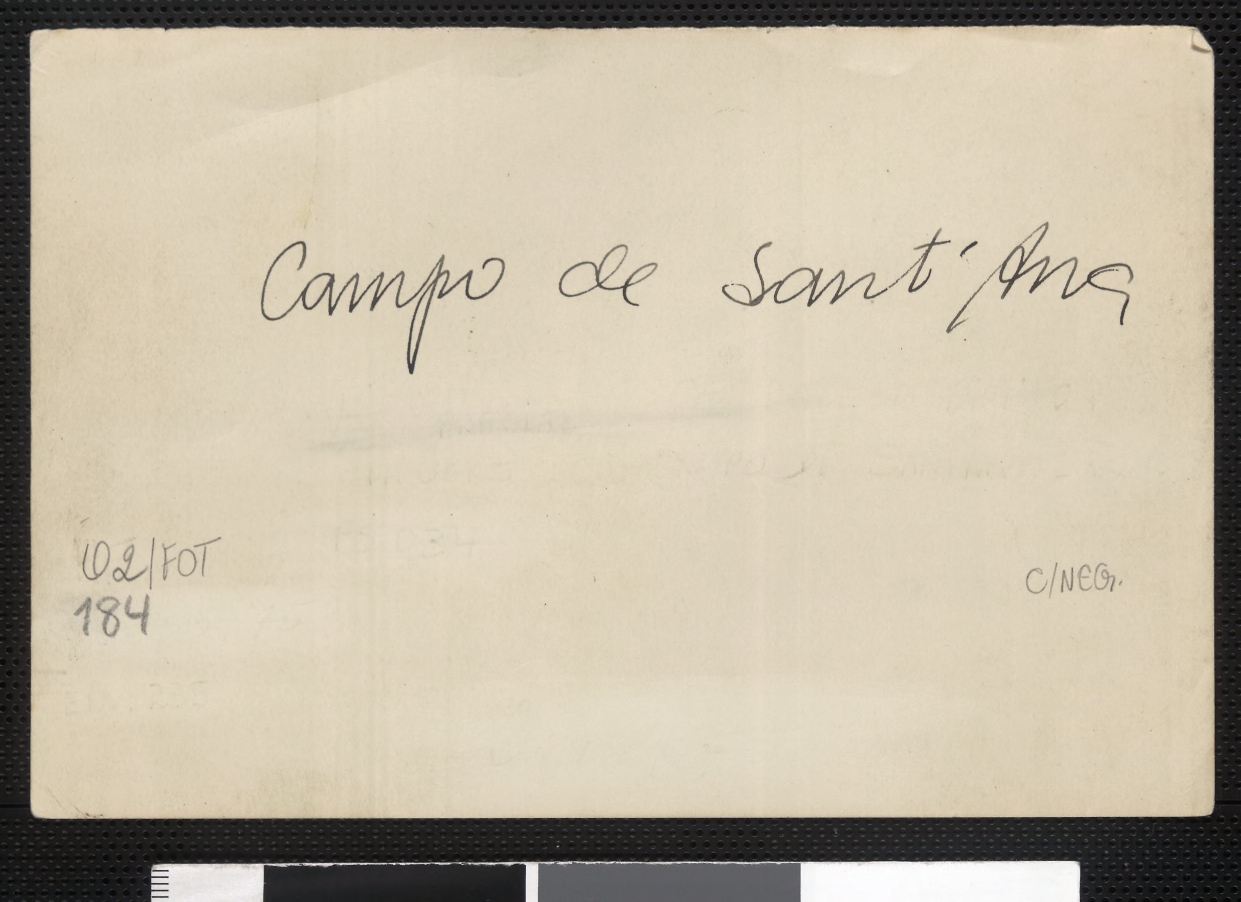 Campo de Sant'Ana
02/FOT
184
C/NEG.